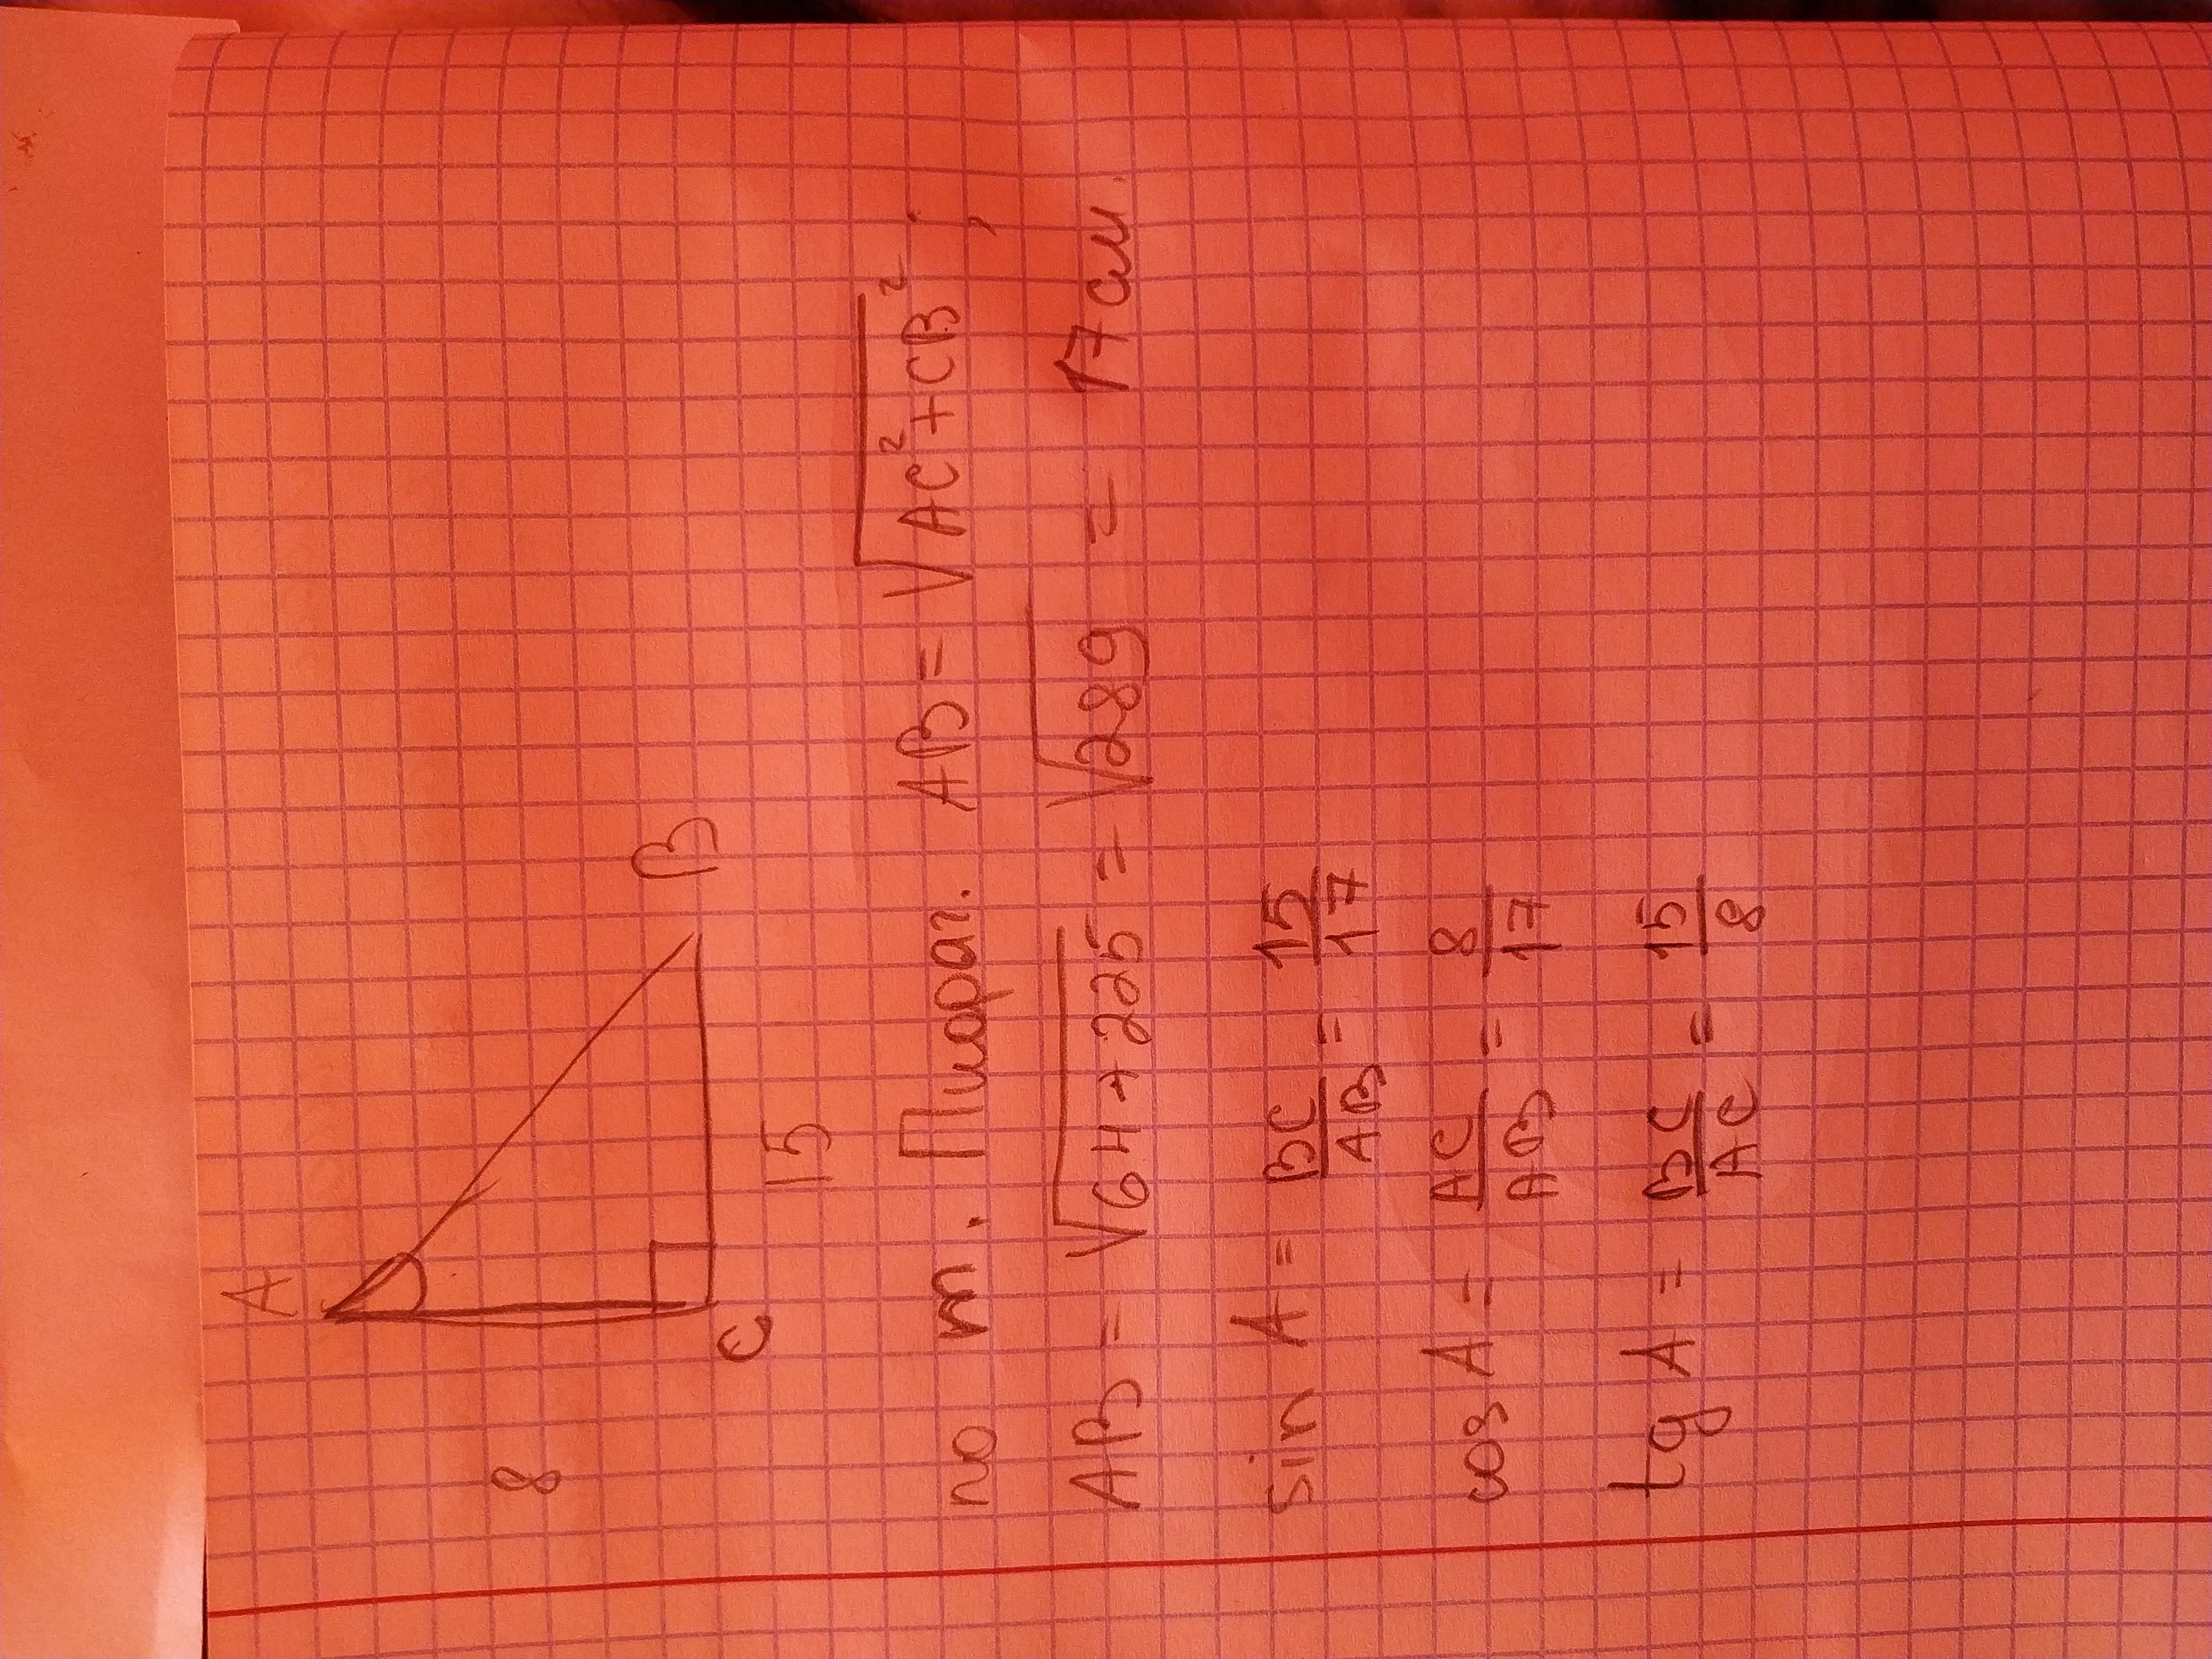 A
8
B
C
15
по т. Пифаг. AB = √AC² + CB² ;
AB = √64 + 225 = √289 = 17 см.
sin A = BC/AB = 15/17
cos A = AC/AB = 8/17
tg A = BC/AC = 15/8